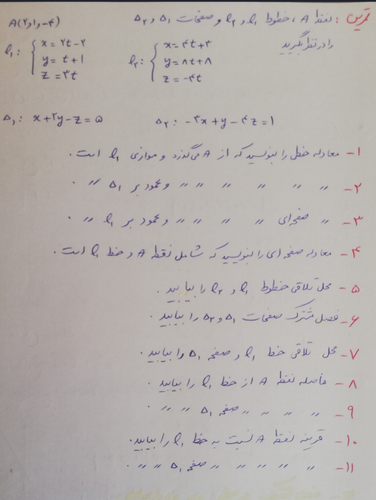 تمرین: نقطه A، خطوط l₁ و l₂ و صفحات Δ₁ و Δ₂ را در نظر بگیرید
A(۲و۱و-۴)
l₁: { x = ۲t - ۲
y = t + ۱
z = ۳t
l₂: { x = ۴t + ۳
y = ۸t + ۸
z = -۴t
Δ₁: x + ۲y - z = ۵
Δ₂: -۳x + y - ۴z = ۱
۱- معادله خطی را بنویسید که از A می‌گذرد و موازی l₁ است.
۲- " " " " " " " و عمود بر Δ₁ "
۳- " صفحه‌ای " " " " " و عمود بر l₁ "
۴- معادله صفحه‌ای را بنویسید که شامل نقطه A و خط l₁ است.
۵- محل تلاقی خطوط l₁ و l₂ را بیابید.
۶- فصل مشترک صفحات Δ₁ و Δ₂ را بیابید.
۷- محل تلاقی خط l₁ و صفحه Δ₁ را بیابید.
۸- فاصله نقطه A از خط l₁ را بیابید.
۹- " " " " صفحه Δ₁ " "
۱۰- قرینه نقطه A نسبت به خط l₁ را بیابید.
۱۱- " " " " " صفحه Δ₁ " "